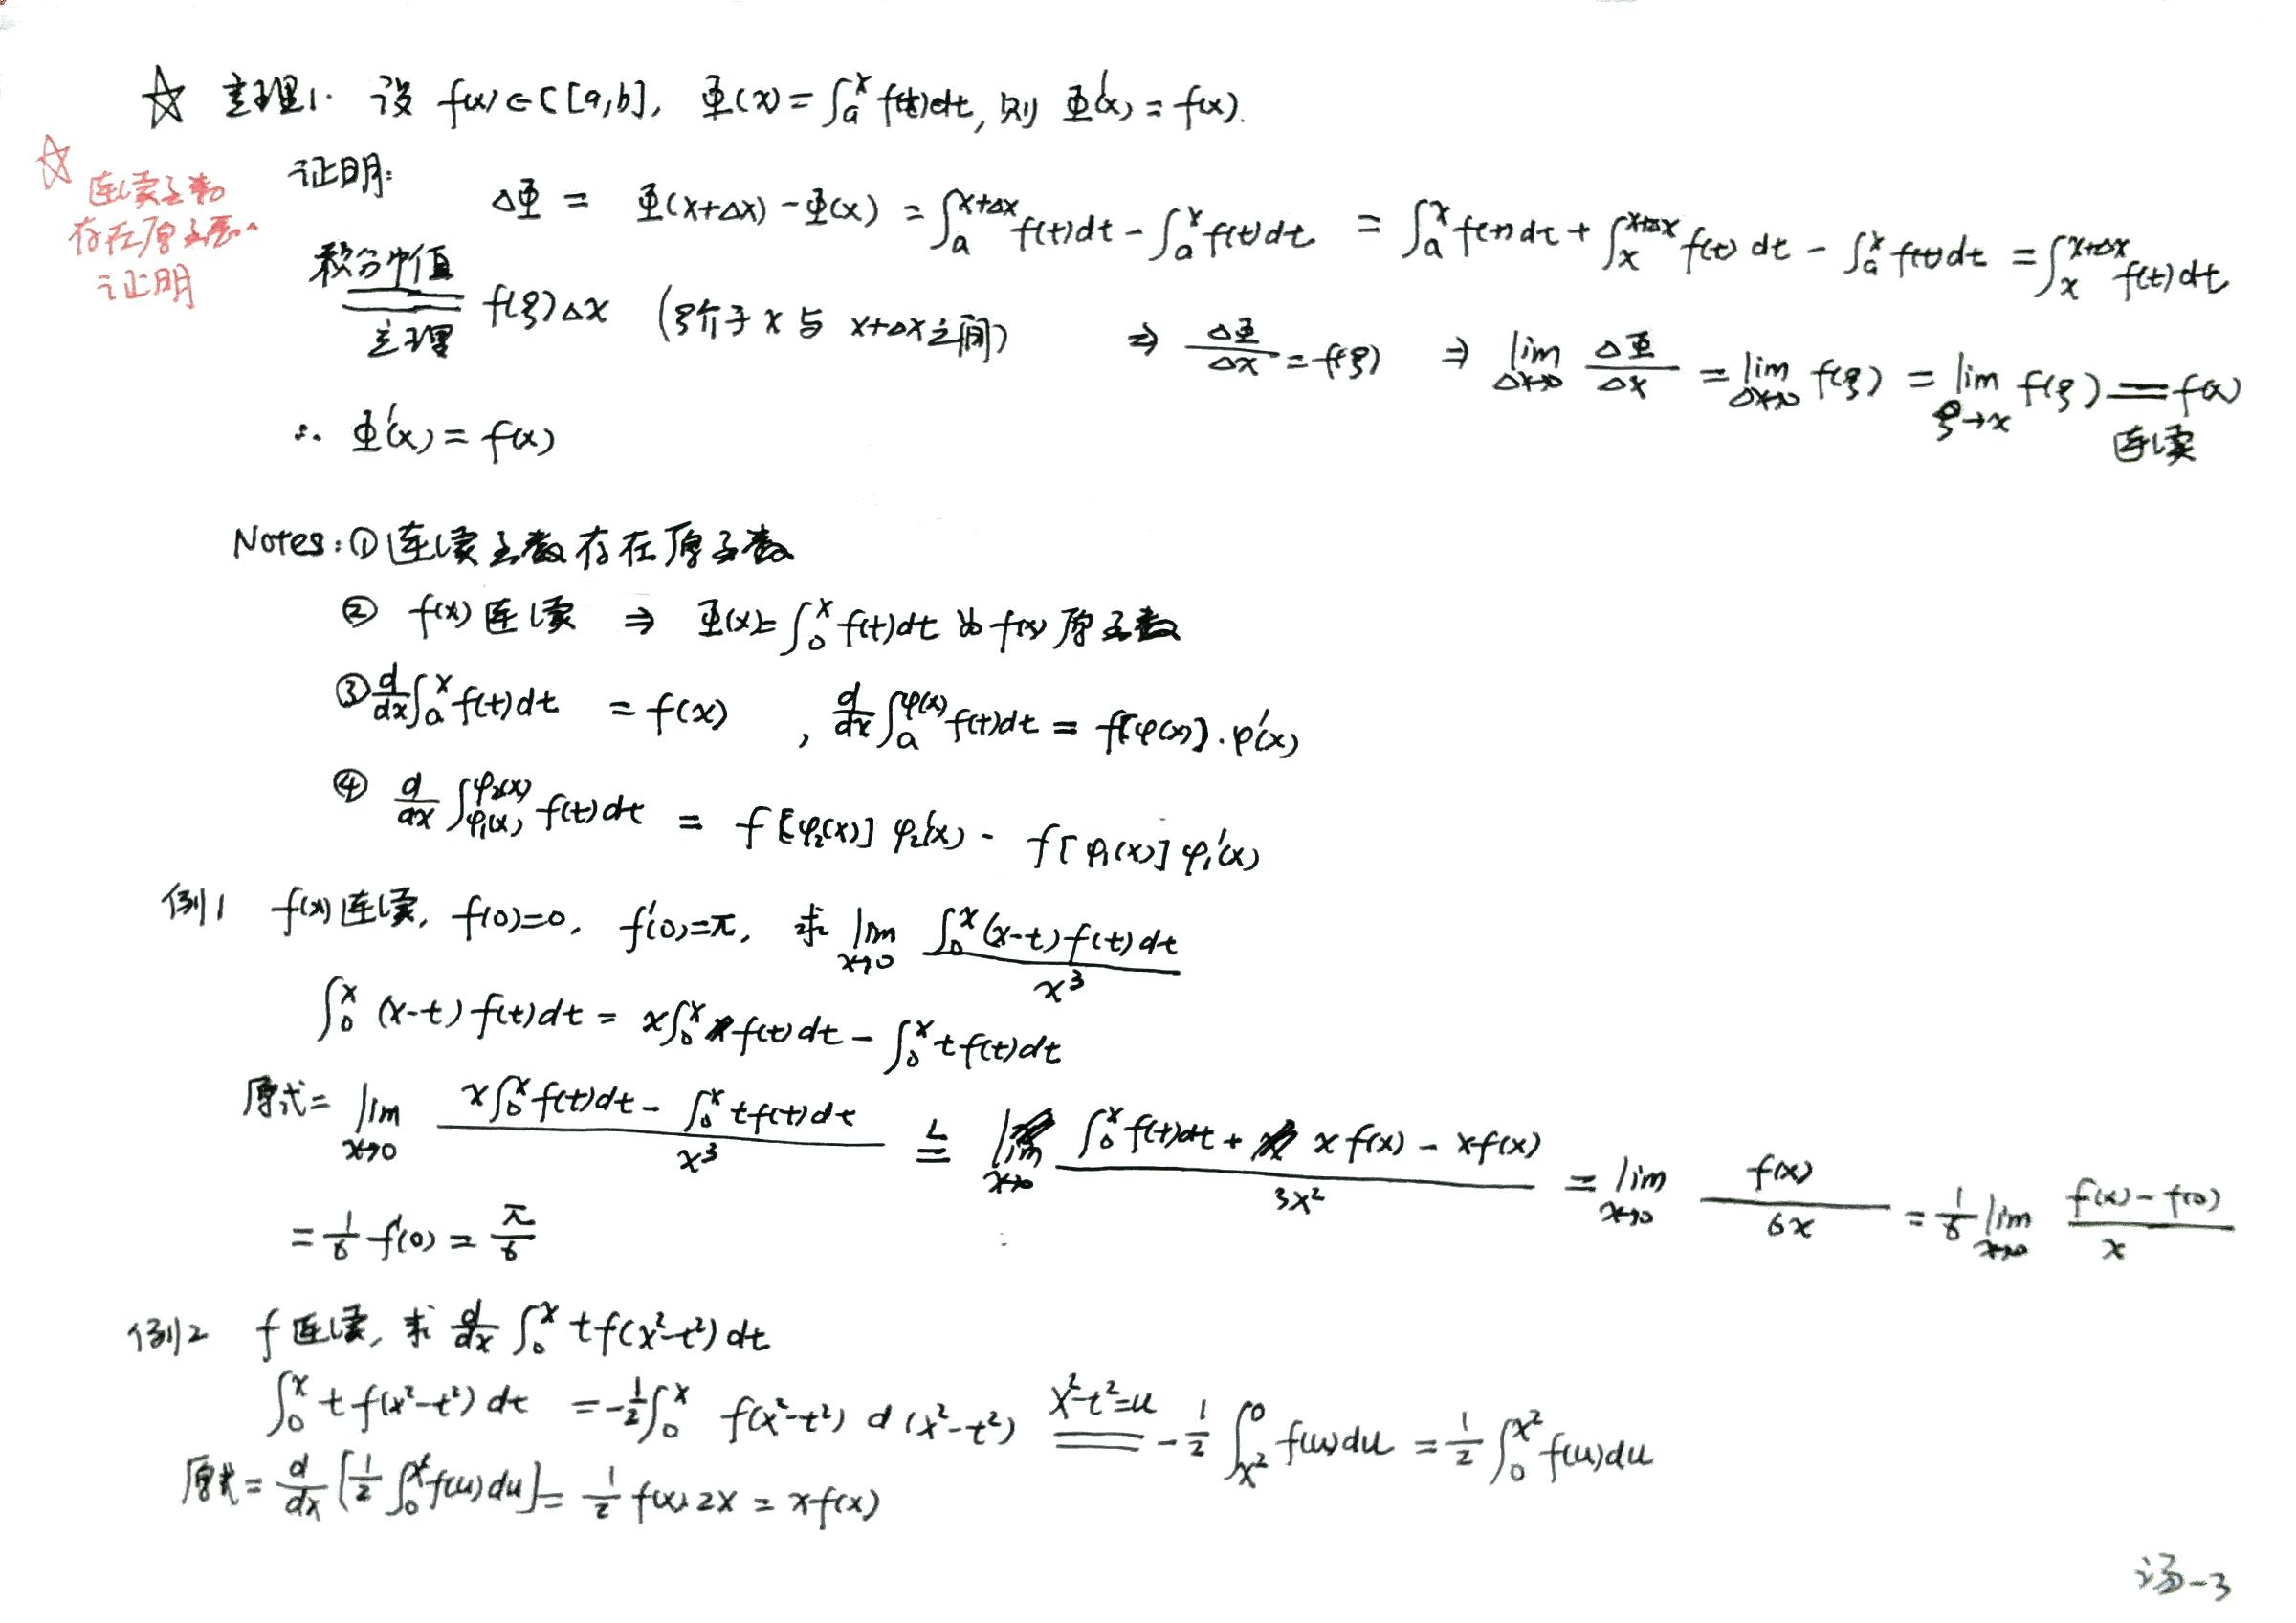 ☆ 定理1. 设 f(x)∈C[a,b], Φ(x)=∫_a^x f(t)dt, 则 Φ'(x)=f(x).
☆ 连续函数
存在原函数
证明
证明:
ΔΦ = Φ(x+Δx)-Φ(x) = ∫_a^{x+Δx} f(t)dt - ∫_a^x f(t)dt = ∫_a^x f(t)dt + ∫_x^{x+Δx} f(t)dt - ∫_a^x f(t)dt = ∫_x^{x+Δx} f(t)dt
积分中值定理 = f(ξ)Δx (ξ介于 x 与 x+Δx之间) ⇒ ΔΦ/Δx = f(ξ) ⇒ lim_{Δx→0} ΔΦ/Δx = lim_{Δx→0} f(ξ) = lim_{ξ→x} f(ξ) = f(x) 连续
∴ Φ'(x) = f(x)
Notes: ① 连续函数存在原函数
② f(x) 连续 ⇒ Φ(x)=∫_0^x f(t)dt 为 f(x) 原函数
③ d/dx ∫_a^x f(t)dt = f(x) , d/dx ∫_a^{φ(x)} f(t)dt = f[φ(x)]·φ'(x)
④ d/dx ∫_{φ₁(x)}^{φ₂(x)} f(t)dt = f[φ₂(x)] φ₂'(x) - f[φ₁(x)] φ₁'(x)
例1 f(x) 连续, f(0)=0, f'(0)=π, 求 lim_{x→0} ∫_0^x (x-t)f(t)dt / x³
∫_0^x (x-t)f(t)dt = x∫_0^x f(t)dt - ∫_0^x tf(t)dt
原式= lim_{x→0} (x∫_0^x f(t)dt - ∫_0^x tf(t)dt) / x³ =^L lim_{x→0} (∫_0^x f(t)dt + xf(x) - xf(x)) / 3x² = lim_{x→0} f(x)/6x = 1/6 lim_{x→0} (f(x)-f(0))/x
= 1/6 f'(0) = π/6
例2 f 连续, 求 d/dx ∫_0^x tf(x²-t²)dt
∫_0^x tf(x²-t²)dt = -1/2 ∫_0^x f(x²-t²) d(x²-t²) =^{x²-t²=u} -1/2 ∫_{x²}^0 f(u)du = 1/2 ∫_0^{x²} f(u)du
原式 = d/dx [1/2 ∫_0^{x²} f(u)du] = 1/2 f(x)·2x = xf(x)
汤-3